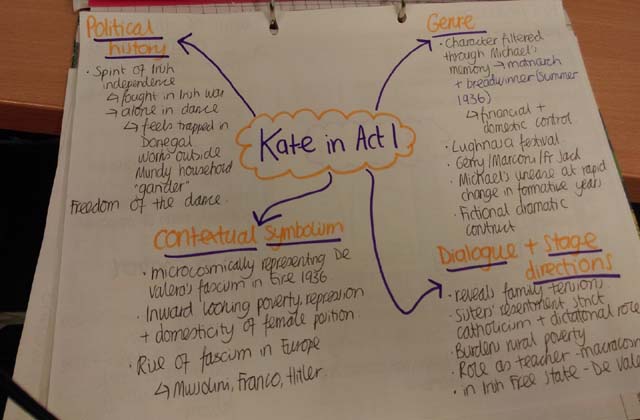 Political
history
· Spirit of Irish
independence
↳ fought in Irish war
→ alone in dance
↳ feels trapped in
Donegal
works outside
Mundy household
"gander"
Freedom of the dance.
Kate in Act 1
Genre
· Character filtered
through Michael's
memory → matriarch
+ breadwinner (Summer
1936)
↳ financial +
domestic control
· Lughnasa festival.
· Gerry/Marconi/Fr Jack
· Michael's unease at rapid
change in formative years
· Fictional dramatic
construct
Contextual Symbolism
· microcosmically representing De
Valera's fascism in Eire 1936
· Inward looking poverty, repression
+ domesticity of female position.
· Rise of fascism in Europe
↳ Mussolini, Franco, Hitler.
Dialogue + stage
directions
· reveals family tension
· Sisters' resentment, strict
catholicism + dictational role
· Burden rural poverty
· Role as teacher - macrocosm
· in Irish Free State - De Vale